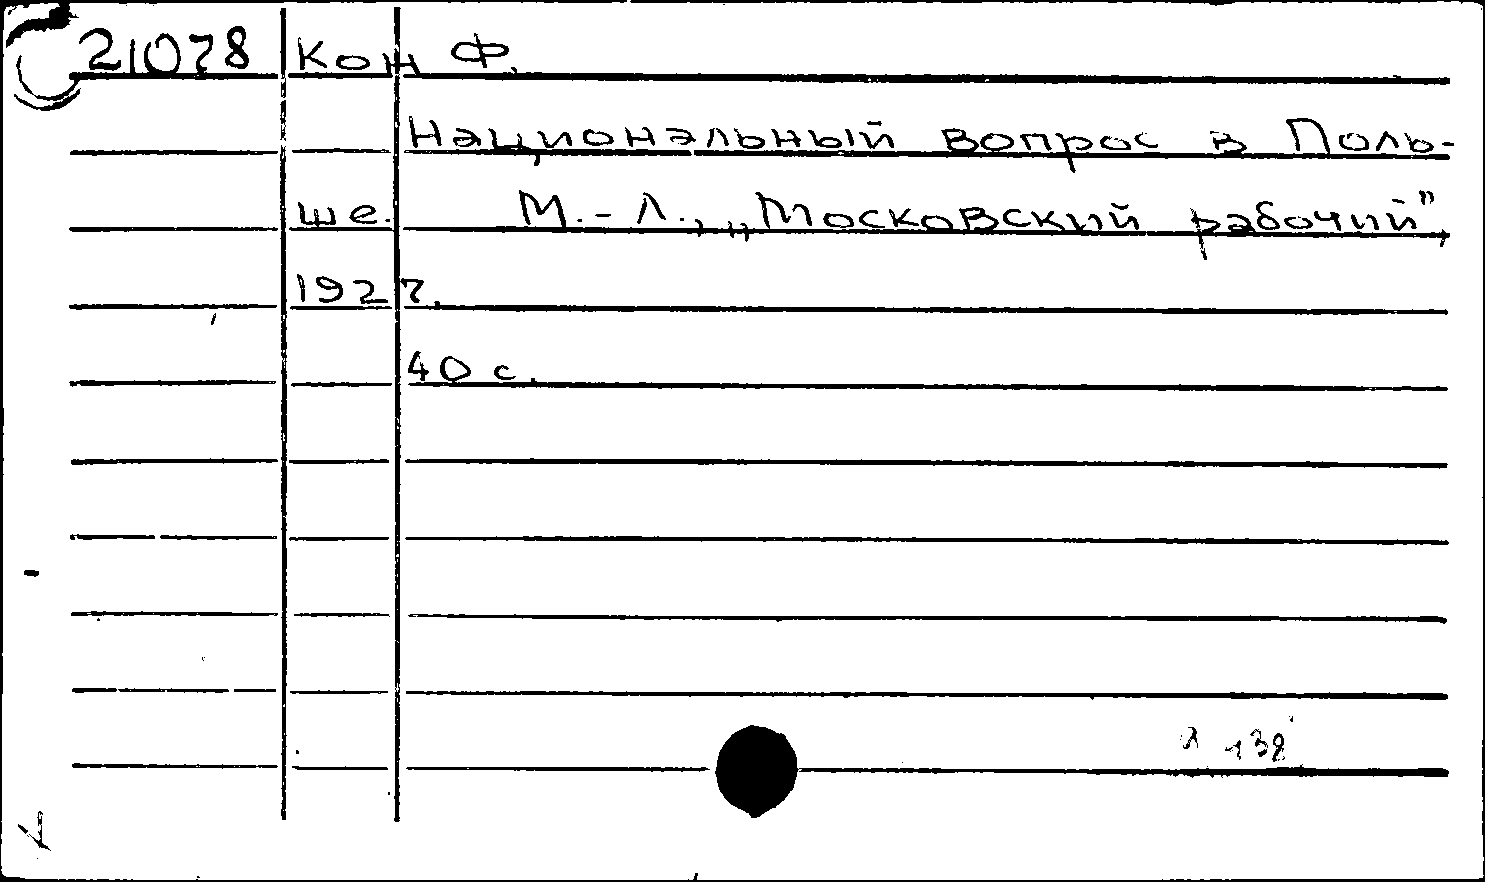 21078 Кон Ф.
Национальный вопрос в Поль-
ше. М.-Л., „Московский рабочий",
1927.
40 с.